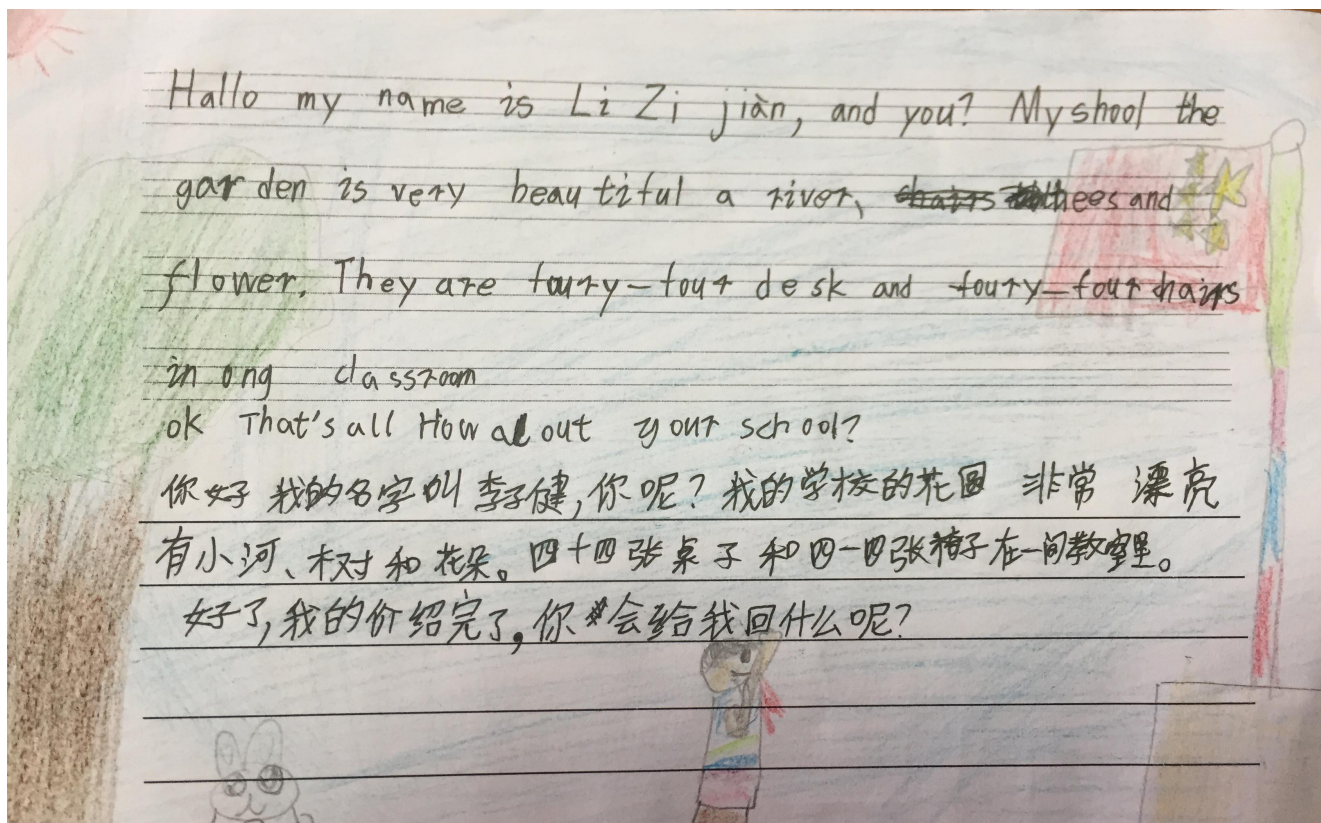 Hallo my name is Li Zi jiàn, and you? My shool the
garden is very beautiful a river, thees and
flower. They are foury-four desk and foury-four chairs
in ong classroom
ok That's all How about your school?
你好 我的名字叫李子健,你呢?我的学校的花园 非常 漂亮
有小河、树和花朵。四十四张桌子和四一四张椅子在一间教室里。
好了,我的价绍完了,你会给我回什么呢?